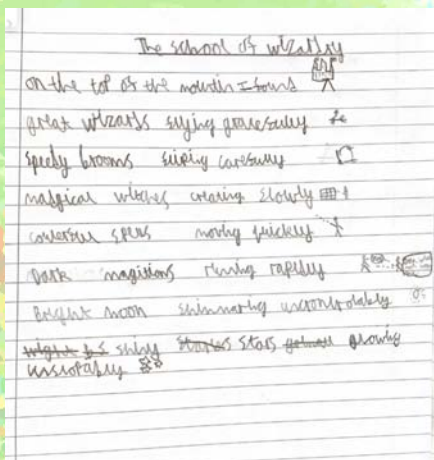 The school of wizardry
on the top of the moutin I found
great wizards flying gracefully
speedy brooms fliping carefully
magical witches creating slowly
colerful spells moving quickly
Dark magitions running rapidly
Bright moon shimmaring uncrontrolably
shiny stars glowing